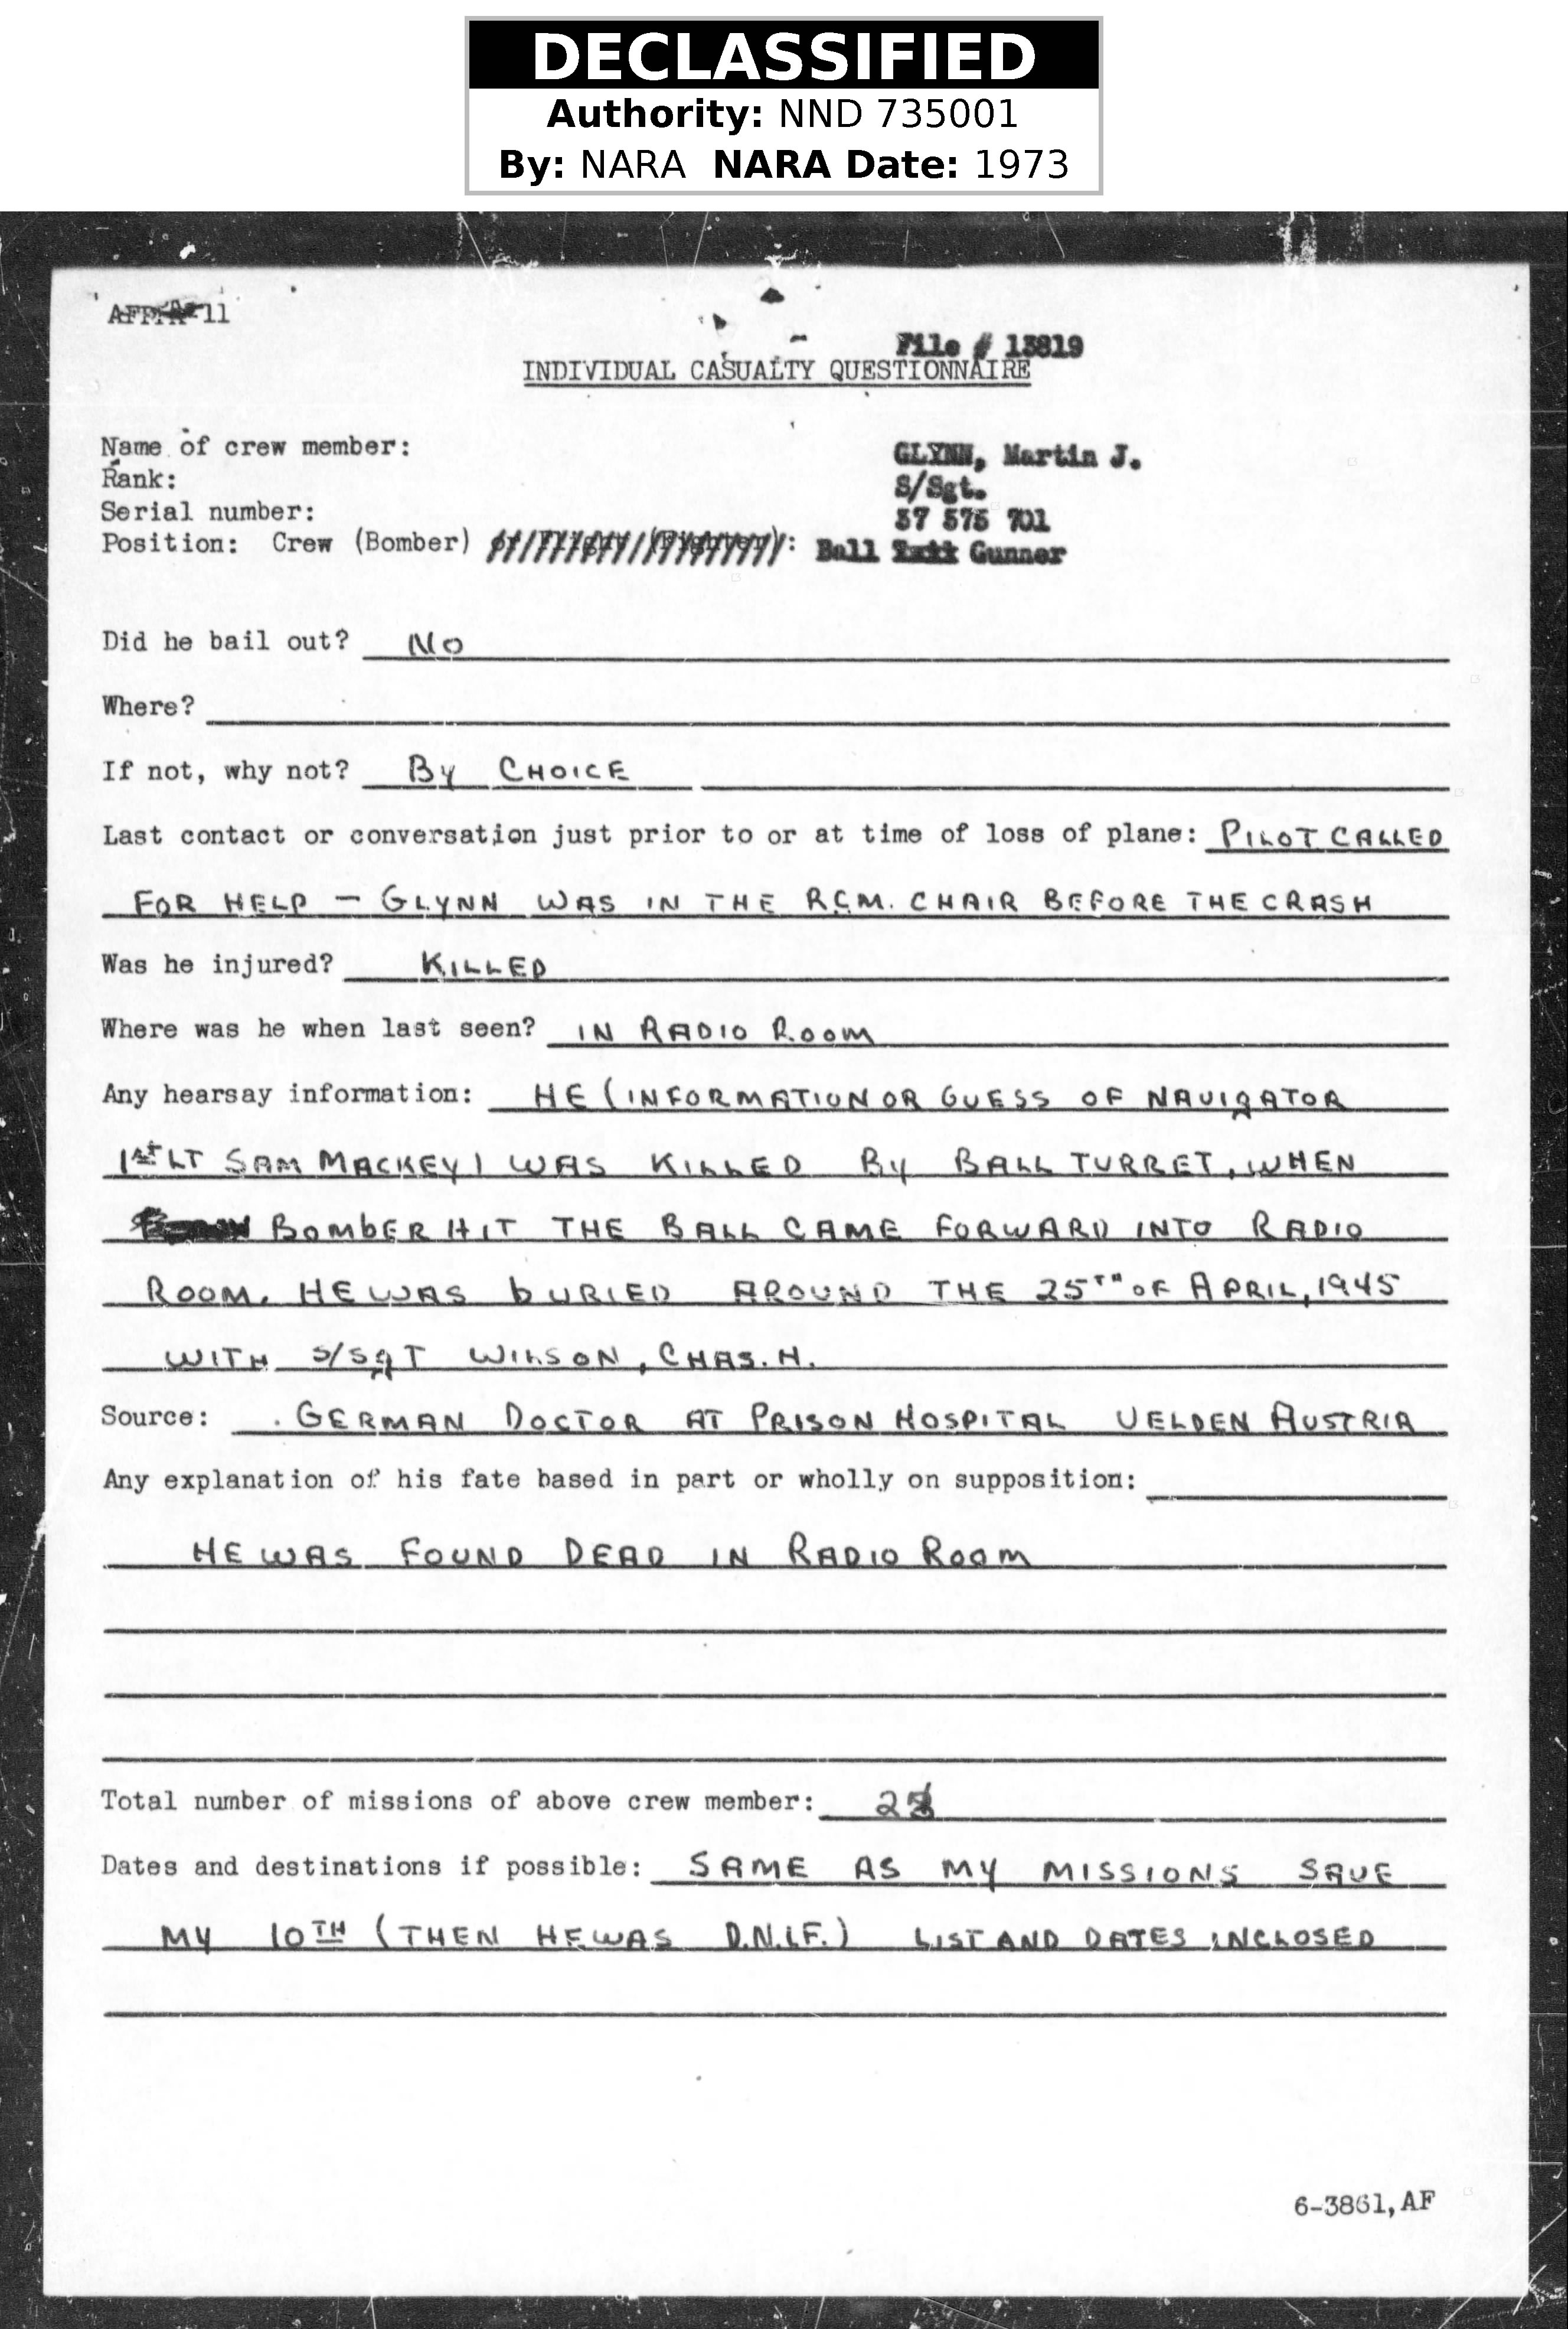 DECLASSIFIED
Authority: NND 735001
By: NARA NARA Date: 1973
11
File # 13819
INDIVIDUAL CASUALTY QUESTIONNAIRE
Name of crew member: GLYNN, Martin J.
Rank: S/Sgt.
Serial number: 37 575 701
Position: Crew (Bomber) or Flight (Fighter): Ball Gunner
Did he bail out? No
Where?
If not, why not? By CHOICE
Last contact or conversation just prior to or at time of loss of plane: PILOT CALLED
FOR HELP — GLYNN WAS IN THE R.C.M. CHAIR BEFORE THE CRASH
Was he injured? KILLED
Where was he when last seen? IN RADIO ROOM
Any hearsay information: HE (INFORMATION OR GUESS OF NAVIGATOR
1ST LT SAM MACKEY) WAS KILLED By BALL TURRET, WHEN
BOMBER HIT THE BALL CAME FORWARD INTO RADIO
ROOM. HE WAS bURIED AROUND THE 25TH OF APRIL, 1945
WITH S/SgT WILSON, CHAS. H.
Source: GERMAN DOCTOR AT PRISON HOSPITAL VELDEN AUSTRIA
Any explanation of his fate based in part or wholly on supposition:
HE WAS FOUND DEAD IN RADIO ROOM
Total number of missions of above crew member:
Dates and destinations if possible: SAME AS MY MISSIONS SAVE
MY 10TH (THEN HE WAS D.N.I.F.) LIST AND DATES INCLOSED
6-3861, AF